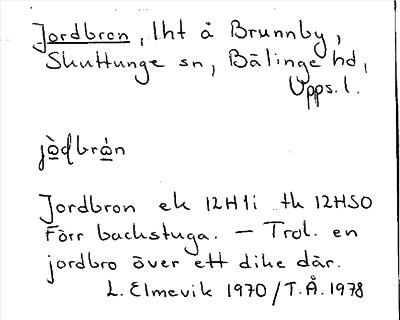 Jordbron, lht å Brunnby,
Skuttunge sn, Bälinge hd,
Upps. l.
jò̲dbrá̲n
Jordbron ek 12H1i tk 12HSO
Förr backstuga. – Trol. en
jordbro över ett dike där.
L. Elmevik 1970 / T.Å. 1978